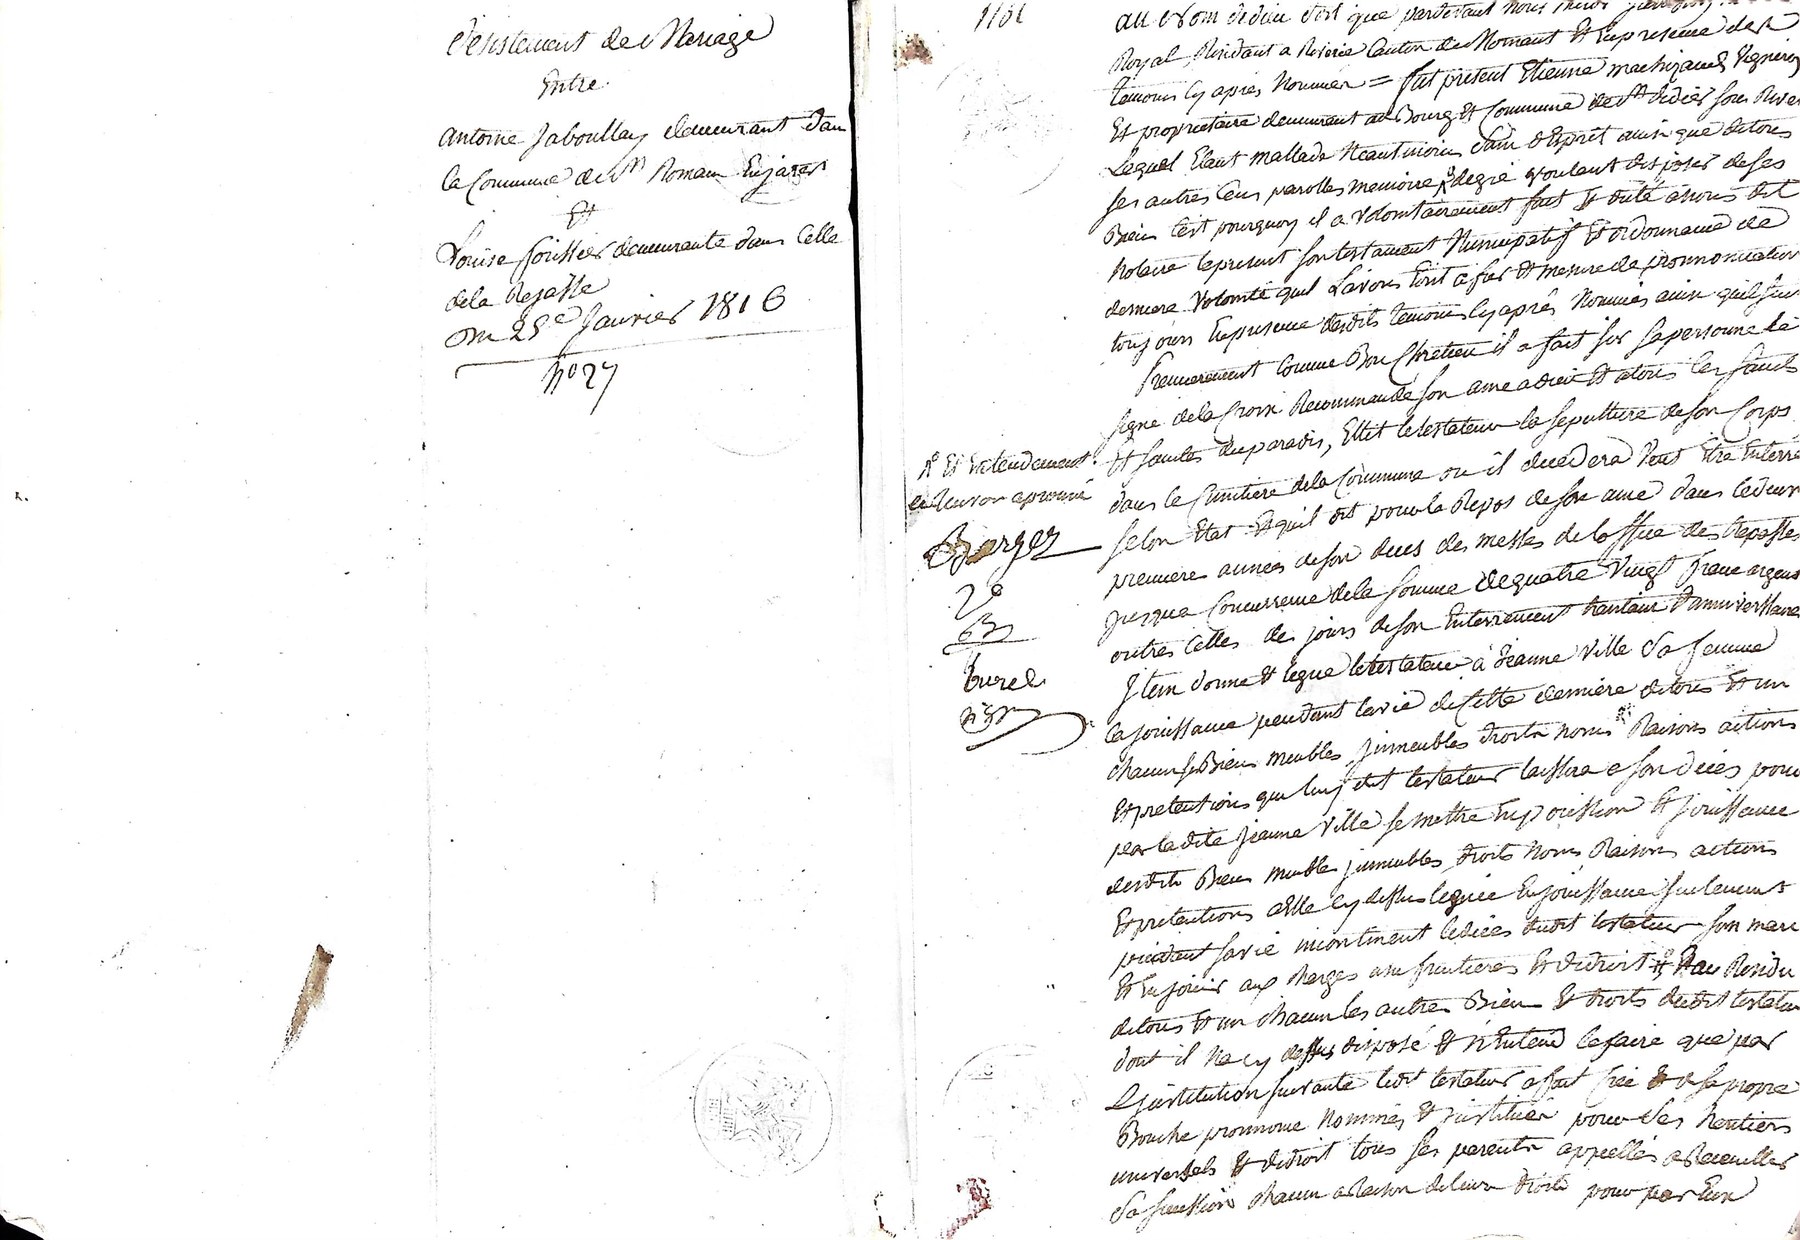 Desistement de Mariage
Entre
antoine Jaboullay demeurant dan
la Commune de St Romain En jarest
Et
Louise demeurante dans Celle
de la Rejasse
Du 25e Janvier 1816
No 27
au Nom de dieu soit que pardevant nous
Royal Residant a Riverie Canton de Mornant Et En presence des
temoins Cy apres Nommer = fut present Etienne Vigneron
Et proprietaire demeurant au Bourg Et Commune de St Didier sous River
Lequel Etant mallade Neantmoins Sain d'Esprit ainsi que de tous
ses autres Cens parolles memoire voulant disposer de ses
Biens C'est pourquoy il a volontairement fait Et dicté a nous dit
Notaire le present son testament Nuncupatif Et ordonnance de
derniere volonté quel Lavons Ecrit a fur Et mesure de prononciation
toujours En presence desdits temoins Cy après Nommés ainsi quil suit
Premierement Comme Bon Chretien il a fait sur sa personne le
signe de la Croix Recommandé son ame a dieu Et a tous les saints
Et saintes du paradis, Ellit le testateur la sepulture de son Corps
dans le Cimitiere de la Commune ou il decedera veut Etre Enterré
selon Etat Et quil dit pour le Repos de son ame dans les deux
premieres années de son deces des messes de loffice des Repasses
jusqua Concurrence de la somme de quatre vingt franc argent
outres Celles des jours de son Enterrement trantain Et anniverssaire
Item donne Et legue le testateur à Jeanne Ville Sa femme
la jouissance pendant la vie de Cette derniere de tous Et un
chacun ses Biens meubles jmmeubles droits noms Raisons actions
Et pretentions que luy dit testateur laissera a son deces pour
par la dite Jeanne Ville se mettre En pocession Et jouissance
desdits Biens meubles jmmeubles droits Noms Raisons actions
Et pretentions a Elle Cy dessus leguée En jouissance seulement
pendant sa vie incontinent le dicés dudit testateur son mari
Et En jouir aux charges usufruitieres Et de droit Et au Residu
de tous Et un chacun les autres Biens Et droits dudit testateur
dont il Na Cy dessus disposé Et N'Entend le faire que par
L'jnstitution suivante ledit testateur a fait Et de sa propre
Bouche prononcé Nommés Et institués pour Ses heritiers
universels Et de droit tous ses parents appellés a Receuillir
Sa succession chacun a Raison de leurs droits pour par Eux
No Et Entendement
le Renvoy aprouvé